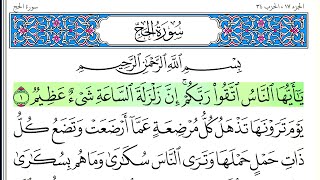 سورة الحج
الجزء ١٧ ، الحزب ٣٤
سُورَةُ الحَجِّ
بِسْمِ اللَّهِ الرَّحْمَٰنِ الرَّحِيمِ
يَٰٓأَيُّهَا ٱلنَّاسُ ٱتَّقُوا۟ رَبَّكُمْ ۚ إِنَّ زَلْزَلَةَ ٱلسَّاعَةِ شَىْءٌ عَظِيمٌ ١
يَوْمَ تَرَوْنَهَا تَذْهَلُ كُلُّ مُرْضِعَةٍ عَمَّآ أَرْضَعَتْ وَتَضَعُ كُلُّ
ذَاتِ حَمْلٍ حَمْلَهَا وَتَرَى ٱلنَّاسَ سُكَٰرَىٰ وَمَا هُم بِسُكَٰرَىٰ